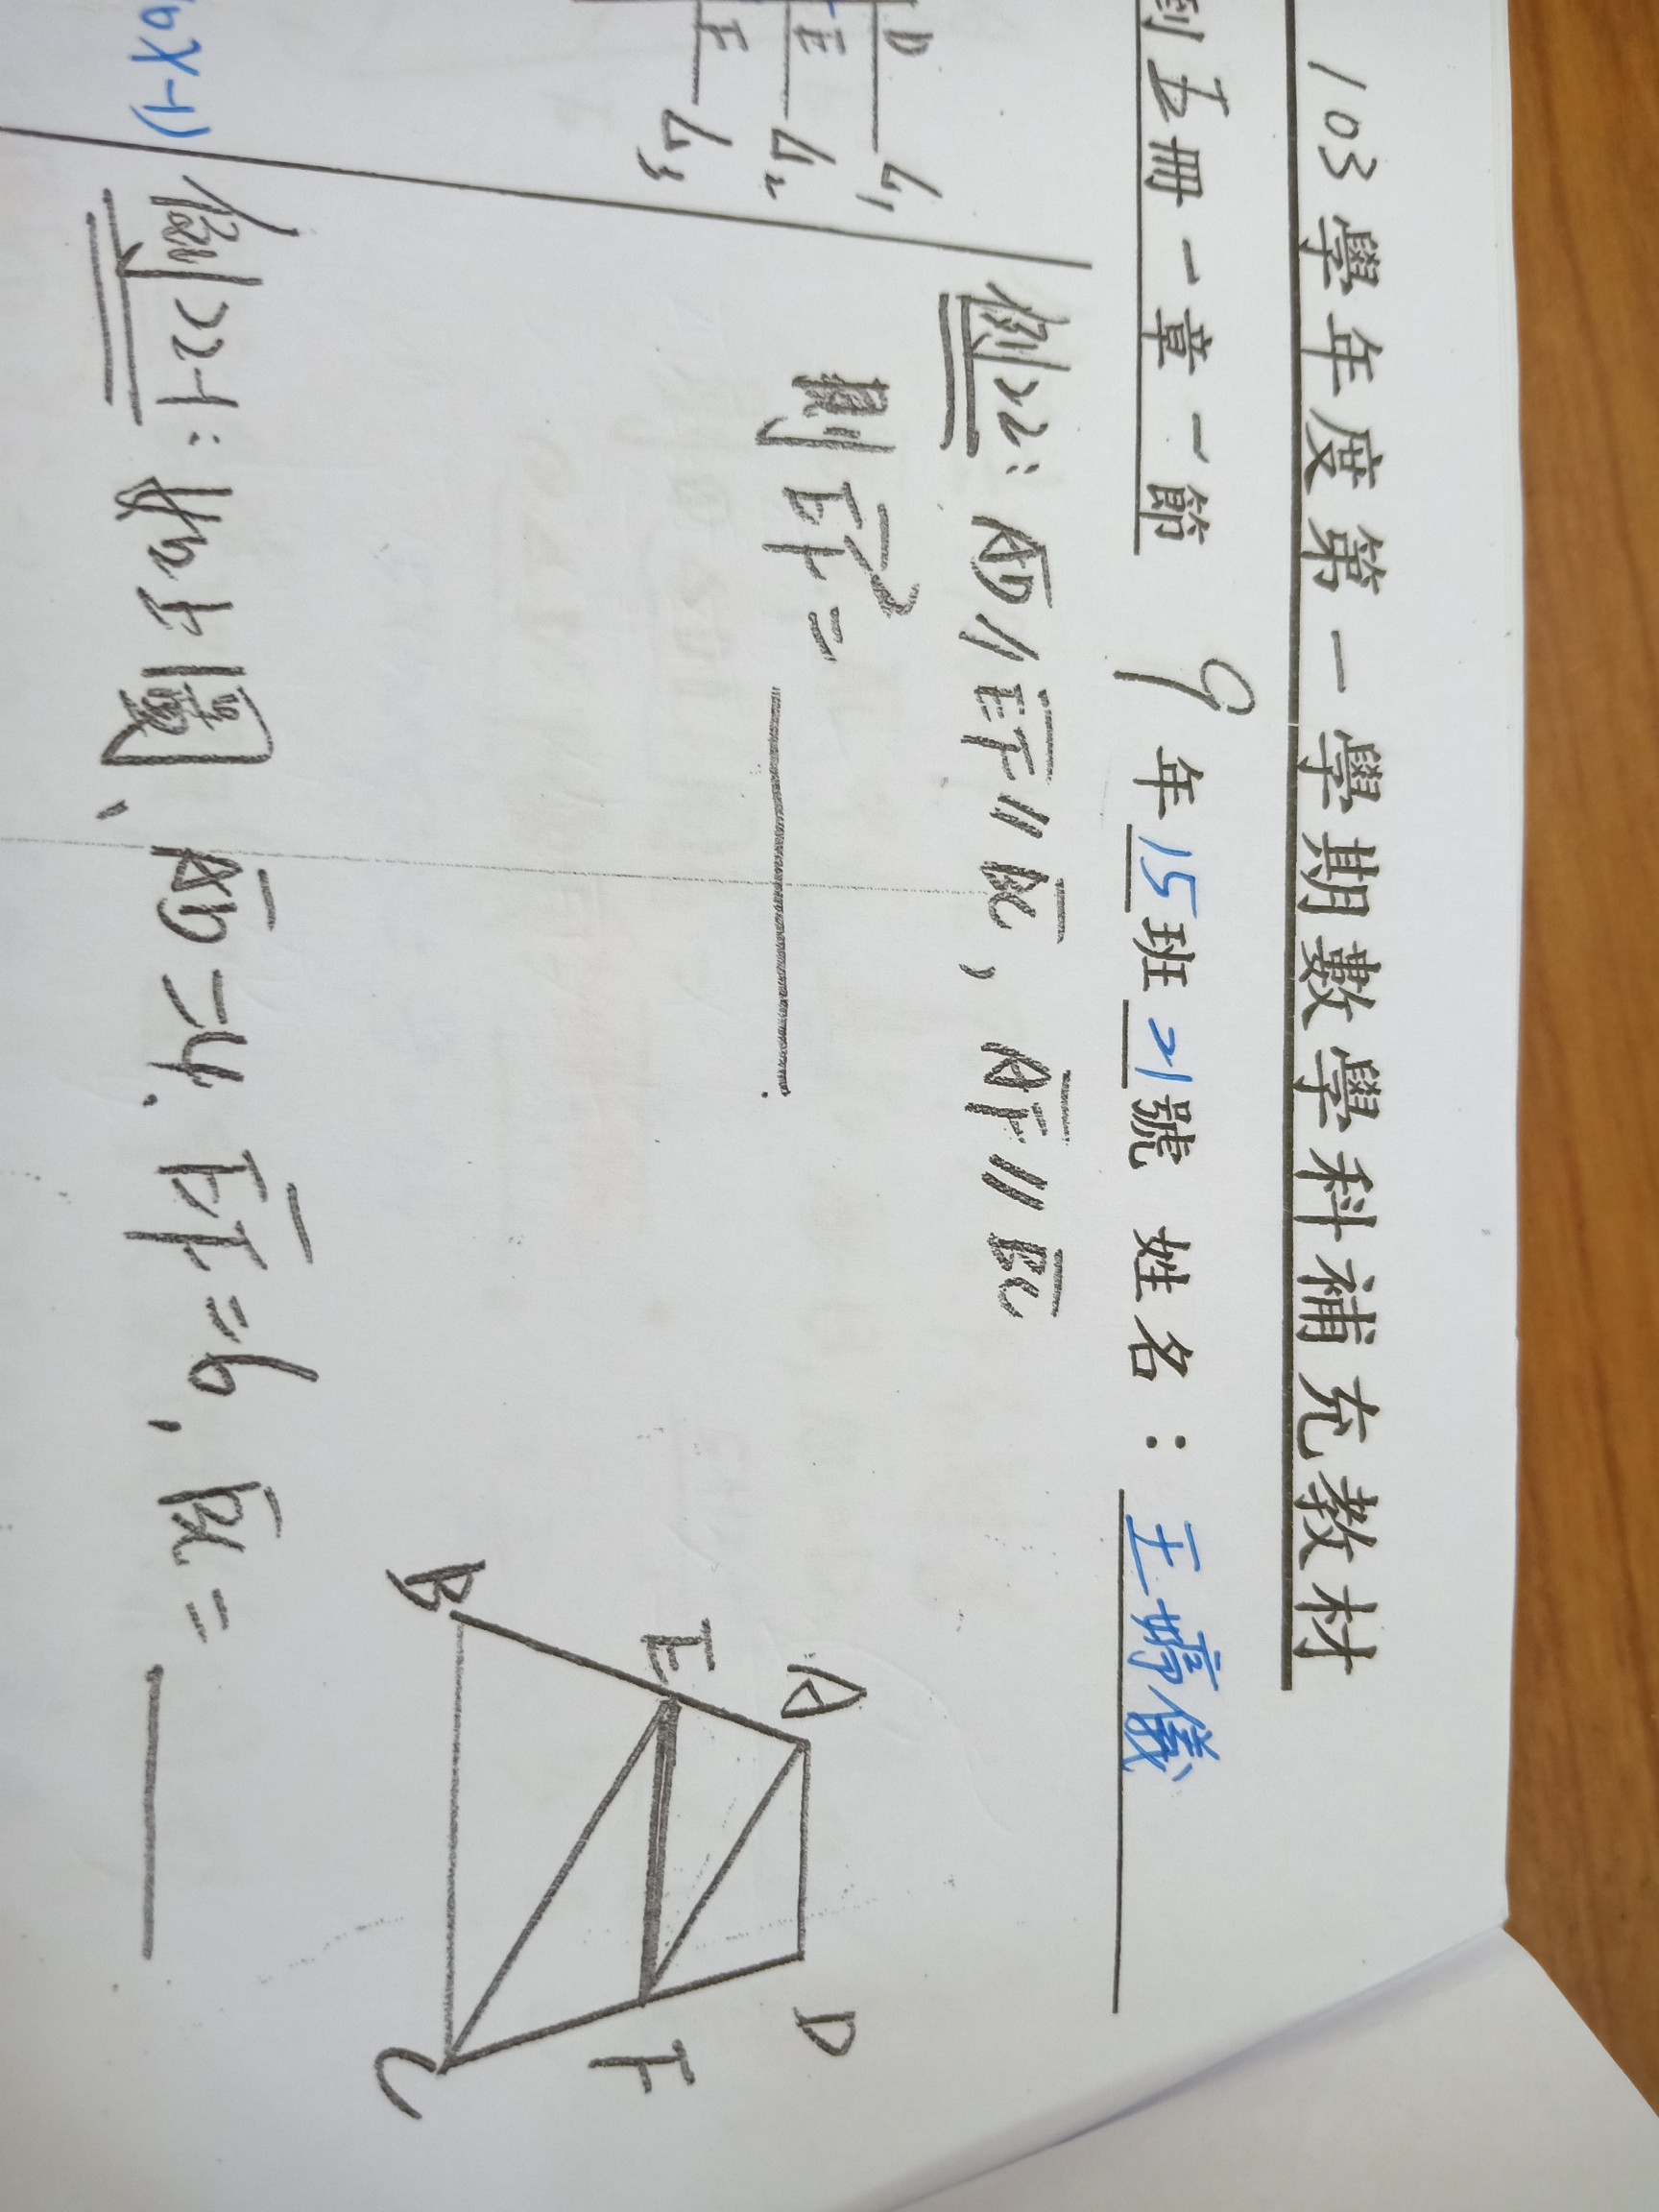 103學年度第一學期數學科補充教材
到五冊一章一節 9年15班21號 姓名：王婷儀
D L₁
E L₂
F L₃
例>2: AD//EF//BC, AF//BC
則EF²=
A D
E F
B C
6x-1)
例>2-1:如上圖、AD=4、EF=6, BC=